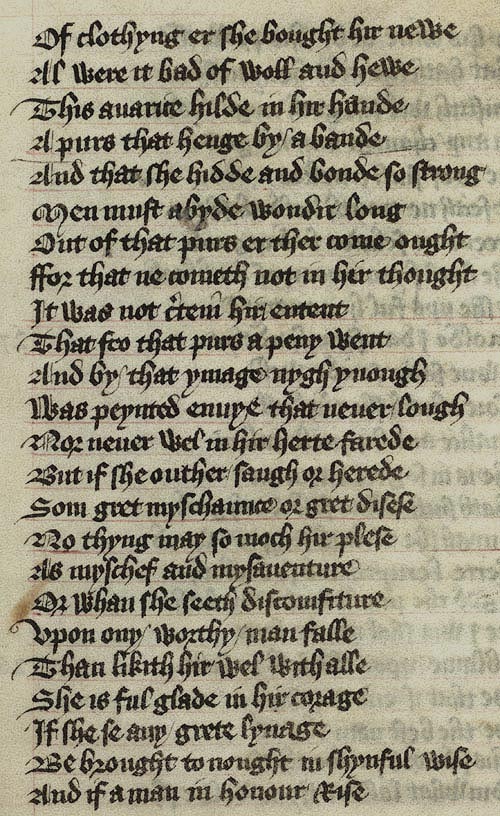 Of clothyng er she bought hir newe
Al were it bad of woll and hewe
This auarice hilde in hir hande
A purs that henge by / a bande
And that she hidde and bonde so strong
Men must abyde wondir long
Out of that purs er ther come ought
ffor that ne cometh not in hir thought
It was not c̃tein hir entent
That fro that purs a peny went
And by / that ymage nygh ynough
Was peynted enuye that neuer lough
Nor neuer wel in hir herte farede
But if she outher saugh or herede
Som gret myschaunce or gret disese
No thyng may so moch hir plese
As myschef and mysauenture
Or whan she seeth discomfiture
Vpon ony / worthy / man falle
Than likith hir wel with alle
She is ful glade in hir corage
If she se any / grete lynage
Be brought to nought in shynful wise
And if a man in honour Rise